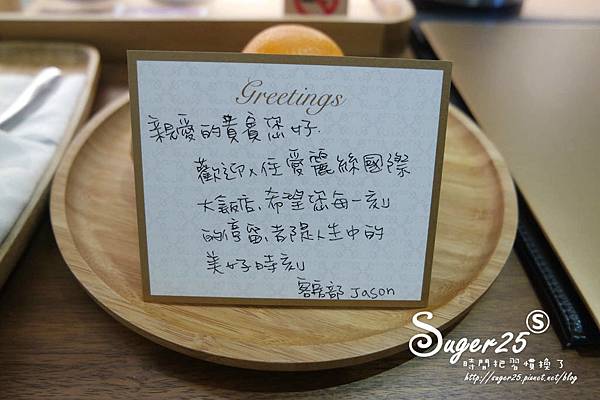 Greetings
親愛的貴賓您好.
歡迎入住愛麗絲國際
大飯店、希望您每一刻
的停留、都是人生中的
美好時刻
客房部 Jason
Suger25 S
時間把習慣換了
http://suger25.pixnet.net/blog